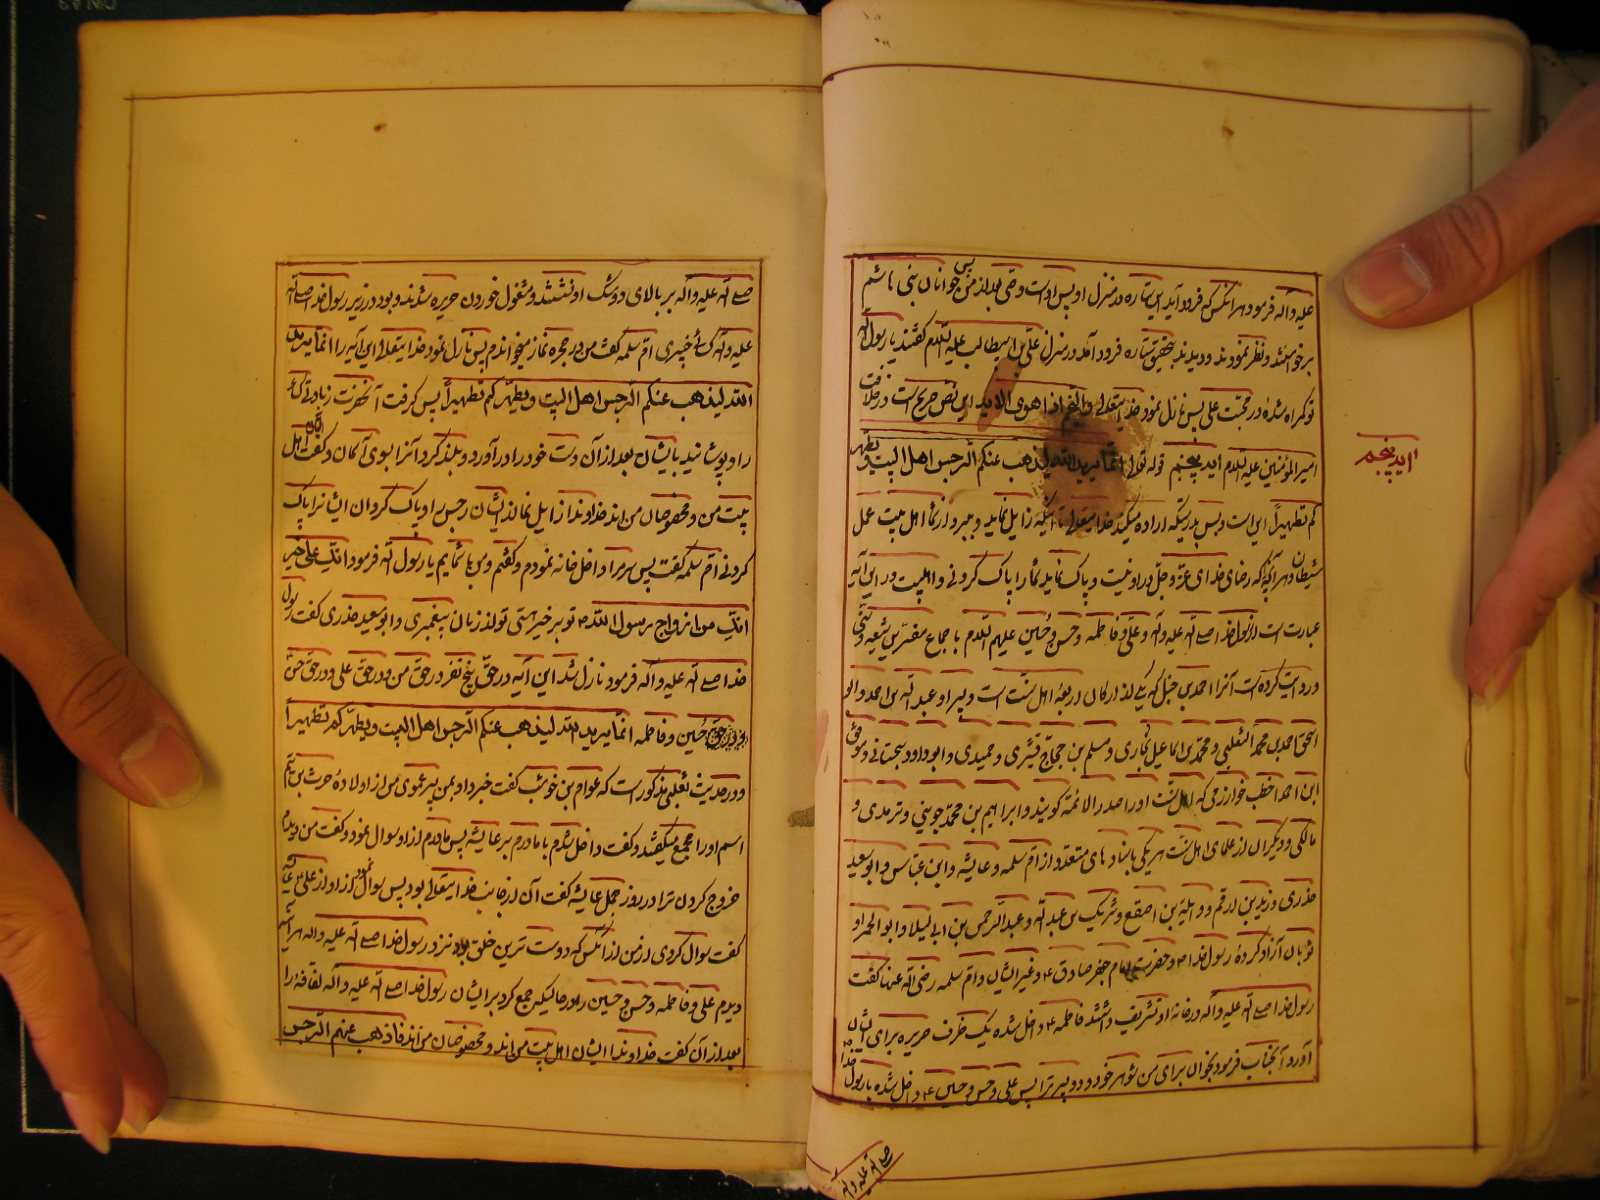 علیه و آله فرمود هر آنکس که فرود آید این ستاره در منزل او پس اوست وصی بعد از من پس جوانان بنی هاشم
برخواستند و نظر نمودند و دیدند بتحقیق ستاره فرود آمد در منزل علی بن ابیطالب علیه السلام گفتند یا رسول الله
تو گمراه شدهٔ در محبت علی پس نازل نمود خدایتعالی والنجم اذا هوی الایه این نص صریح است در خلافت
امیرالمؤمنین علیه السلام آیه پنجم قوله تعالی انما یرید الله لیذهب عنکم الرجس اهل البیت و یطهر
کم تطهیراً این است و بس بدرستیکه اراده میکند خدایتعالی تا اینکه زایل نماید و ببرد از شما اهل بیت عمل
شیطان و هر آنچه که رضای خدای عز و جل در او نیست و پاک نماید شما را پاک کردنی و اهلبیت در این آیه
عبارت است از رسول خدا صلی الله علیه و آله و علی و فاطمه و حسن و حسین علیهم السلام باجماع مفسرین شیعه و سنی
و روایت کرده است آنرا احمد بن حنبل که یکی از ارکان اربعهٔ اهل سنت است و پسر او عبدالله بن احمد و ابو
اسحق احمد بن محمد الثعلبی و محمد بن اسماعیل بخاری و مسلم بن حجاج قشیری و حمیدی و ابوداود سجستانی و موفق
ابن احمد اخطب خوارزمی که اهل سنت او را صدر الائمه گویند و ابراهیم بن محمد جوینی و ترمدی و
مالکی و دیگران از علمای اهل سنت هر یکی باسناد های متعدد از ام سلمه و عایشه و ابن عباس و ابوسعید
خدری و زید بن ارقم و واثلة بن اصقع و شریک بن عبدالله و عبدالرحمن بن ابی لیلا و ابوالحمرا و
ثوبان آزاد کردهٔ رسول خدا ص و حضرت امام جعفر صادق ع و غیر ایشان و ام سلمه رضی الله عنها گفت
رسول خدا صلی الله علیه و آله در خانهٔ او تشریف داشتند فاطمه ع داخل شده یک ظرف حریره برای ایشان
آورد آنجناب فرمود بخوان برای من شوهر خود و دو پسر ترا پس علی و حسن و حسین ع داخل شده با رسول خدا
صلی الله علیه و آله
آیه پنجم
صلی الله علیه و آله بر بالای دوشک او نشستند و مشغول خوردن حریره شدند و بود در زیر رسول خدا صلی الله
علیه و آله کسای خیبری ام سلمه گفت من در حجره نماز میخواندم پس نازل نمود خدایتعالی این آیه را انما یرید
الله لیذهب عنکم الرجس اهل البیت و یطهرکم تطهیراً پس گرفت آنحضرت زیادتی کسا
را و پوشانید بایشان بعد از آن دست خود را در آورد و بلند کرد آنرا بسوی آسمان و گفت اینان اهل
بیت من و مخصوصان من اند خداوندا زایل نما از ایشان رجس را و پاک گردان ایشانرا پاک
کردنی ام سلمه گفت پس سر مرا داخل خانه نمودم و گفتم و من با شمایم یا رسول الله فرمود انک علی خیر
انک من ازواج رسول الله ص تو بر خیر هستی تو از زنان پیغمبری و ابوسعید خدری گفت رسول
خدا صلی الله علیه و آله فرمود نازل شد این آیه در حق پنج نفر در حق من و در حق علی و در حق حسن
و در حق حسین و فاطمه انما یرید الله لیذهب عنکم الرجس اهل البیت و یطهرکم تطهیراً
و در حدیث ثعلبی مذکور است که عوام بن خوشب گفت خبر داد بمن پسر عموی من از اولادهٔ حرث بن تیم
اسم او را مجمع میگفتند و گفت داخل شدم با مادرم بر عایشه پس مادرم از او سوال نمود و گفت من دیدم
خروج کردن ترا در روز جمل عایشه گفت آن از جانب خدایتعالی بود پس سوال نمود از او از علی ع عایشه
گفت سوال کردی از من از آنکس که دوست ترین خلق بود نزد رسول خدا صلی الله علیه و آله هر آینه
دیدم علی و فاطمه و حسن و حسین را در حالیکه جمع کرد بر ایشان رسول خدا صلی الله علیه و آله لفافهٔ را
بعد از آن گفت خداوندا ایشان اهل بیت من اند و مخصوصان من اند فاذهب عنهم الرجس